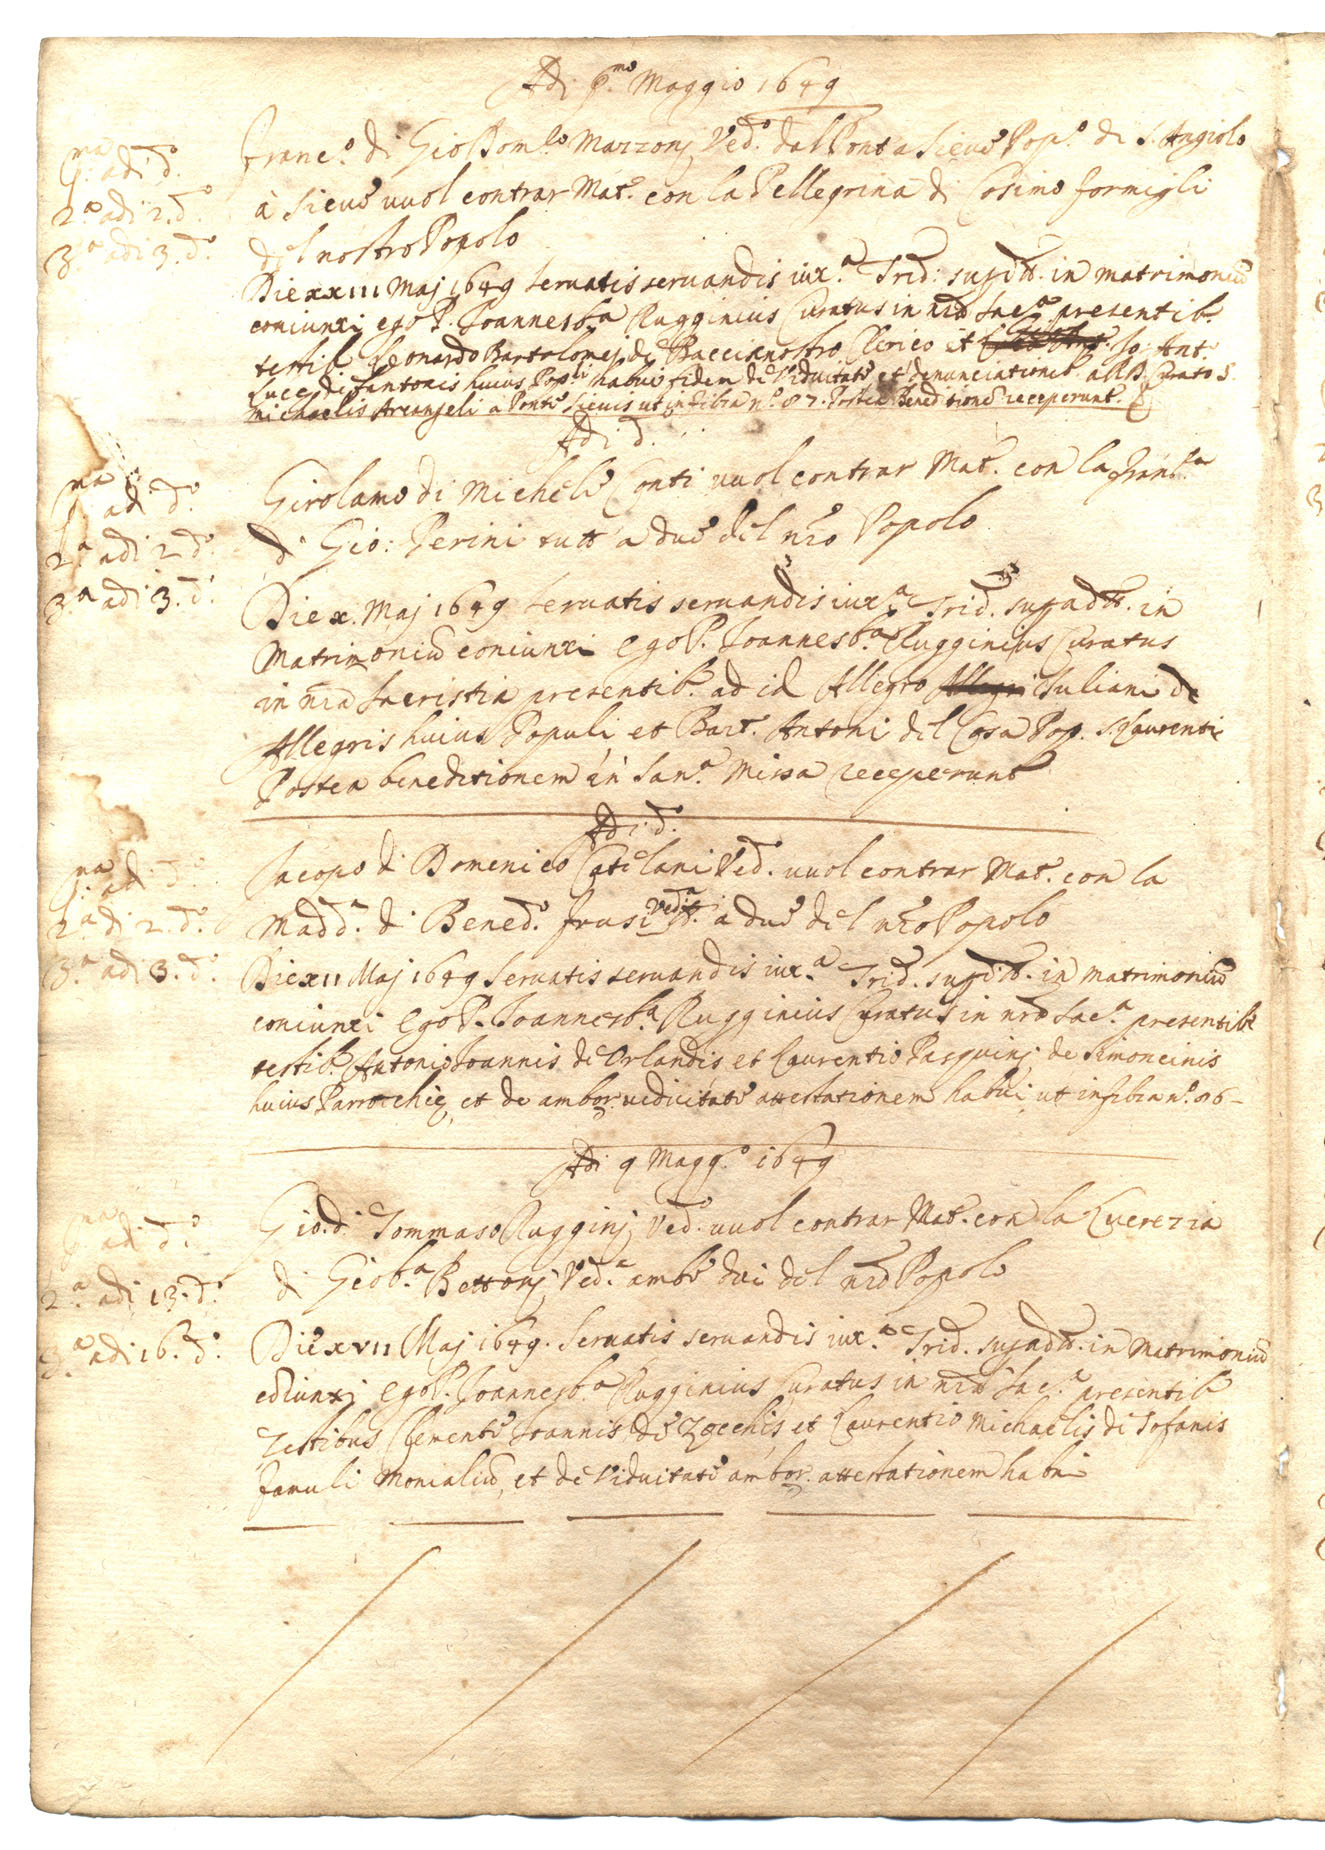 Adi p.mo Maggio 1649
p.ma adi d.o
2.a adi 2. d.o
3.a adi 3. d.o
Franc.o di Gio Dom.co Mazzonj Ved.o dal Pont a Sieve Pop.o di S. Angiolo
à Sieve vuol contrar Mat.o con la Pellegrina di Cosimo formigli
del nostro Popolo
Die xxiii Maj 1649 servatis servandis iux.a Trid: in matrimoniū
coniunxi ego P. Joannes b.a Rugginius Curatus in nrā Sac.a presentib.
testib. Leonardo Bartolomej di Baccianostro Clerico et Jo: Ant.
Luce di Santonis huius Pop.li habui fidem de Viduitate et denunciationib. a R.D. Curato S.
Michaelis Arcangeli a Ponte Sievis ut in filza n.o 87. Postea Beneditionē receperunt.
Adi d.
p.ma adi d.o
2.a adi 2 d.o
3.a adi 3. d.o
Girolamo di Michele Conti vuol contrar Mat.o con la Fran.ca
di Gio: Perini tutt' a due del nrō Popolo
Die x. Maj 1649 servatis servandis iux.a Trid. in
Matrimoniū coniunxi ego P. Joannes b.a Rugginius Curatus
in nrā Sacristia presentib. ad id Allegro Iuliani de
Allegris huius Populi et Bart.o Antoni del Casa Pop. S. Laurenti
Postea beneditionem in San.a Missa receperunt
Adi d.o
p.ma adi d.o
2.a di 2. d.o
3.a adi 3. d.o
Jacopo di Domenico Catelani Ved.o vuol contrar Mat.o con la
Madd.a di Bened.o frusi Ved.a tt. a due del nrō Popolo
Die xii Maj 1649 servatis servandis iux.a Trid. in matrimoniū
coniunxi ego P. Joannes b.a Rugginius Curatus in nrā Sac.a presentib.
testib. Antonio Joannis de Orlandis et Laurentio Pasquinj de Simoncinis
huius Parrochie, et de ambor. viduitate attestationem habui ut in filza n.o 86 -
Adi 9 Magg.o 1649
p.ma adi d.o
2.a adi 13. d.o
3.a adi 16. d.o
Gio. di Tommaso Rugginj Ved.o vuol contrar Mat.o con la Lucrezia
di Gio b.a Bettonj Ved.a ambe dui del nrō Popolo
Die xvii Maj 1649. servatis servandis iux.a Trid. in Matrimoniū
cōiunxj ego P. Joannes b.a Rugginius Curatus in nrā Sac.a presentib.
Testibus Clemente Joannis de Zocchis et Laurentio Michaelis di Tofanis
famuli Monialiū, et de Viduitate ambor. attestationem habui